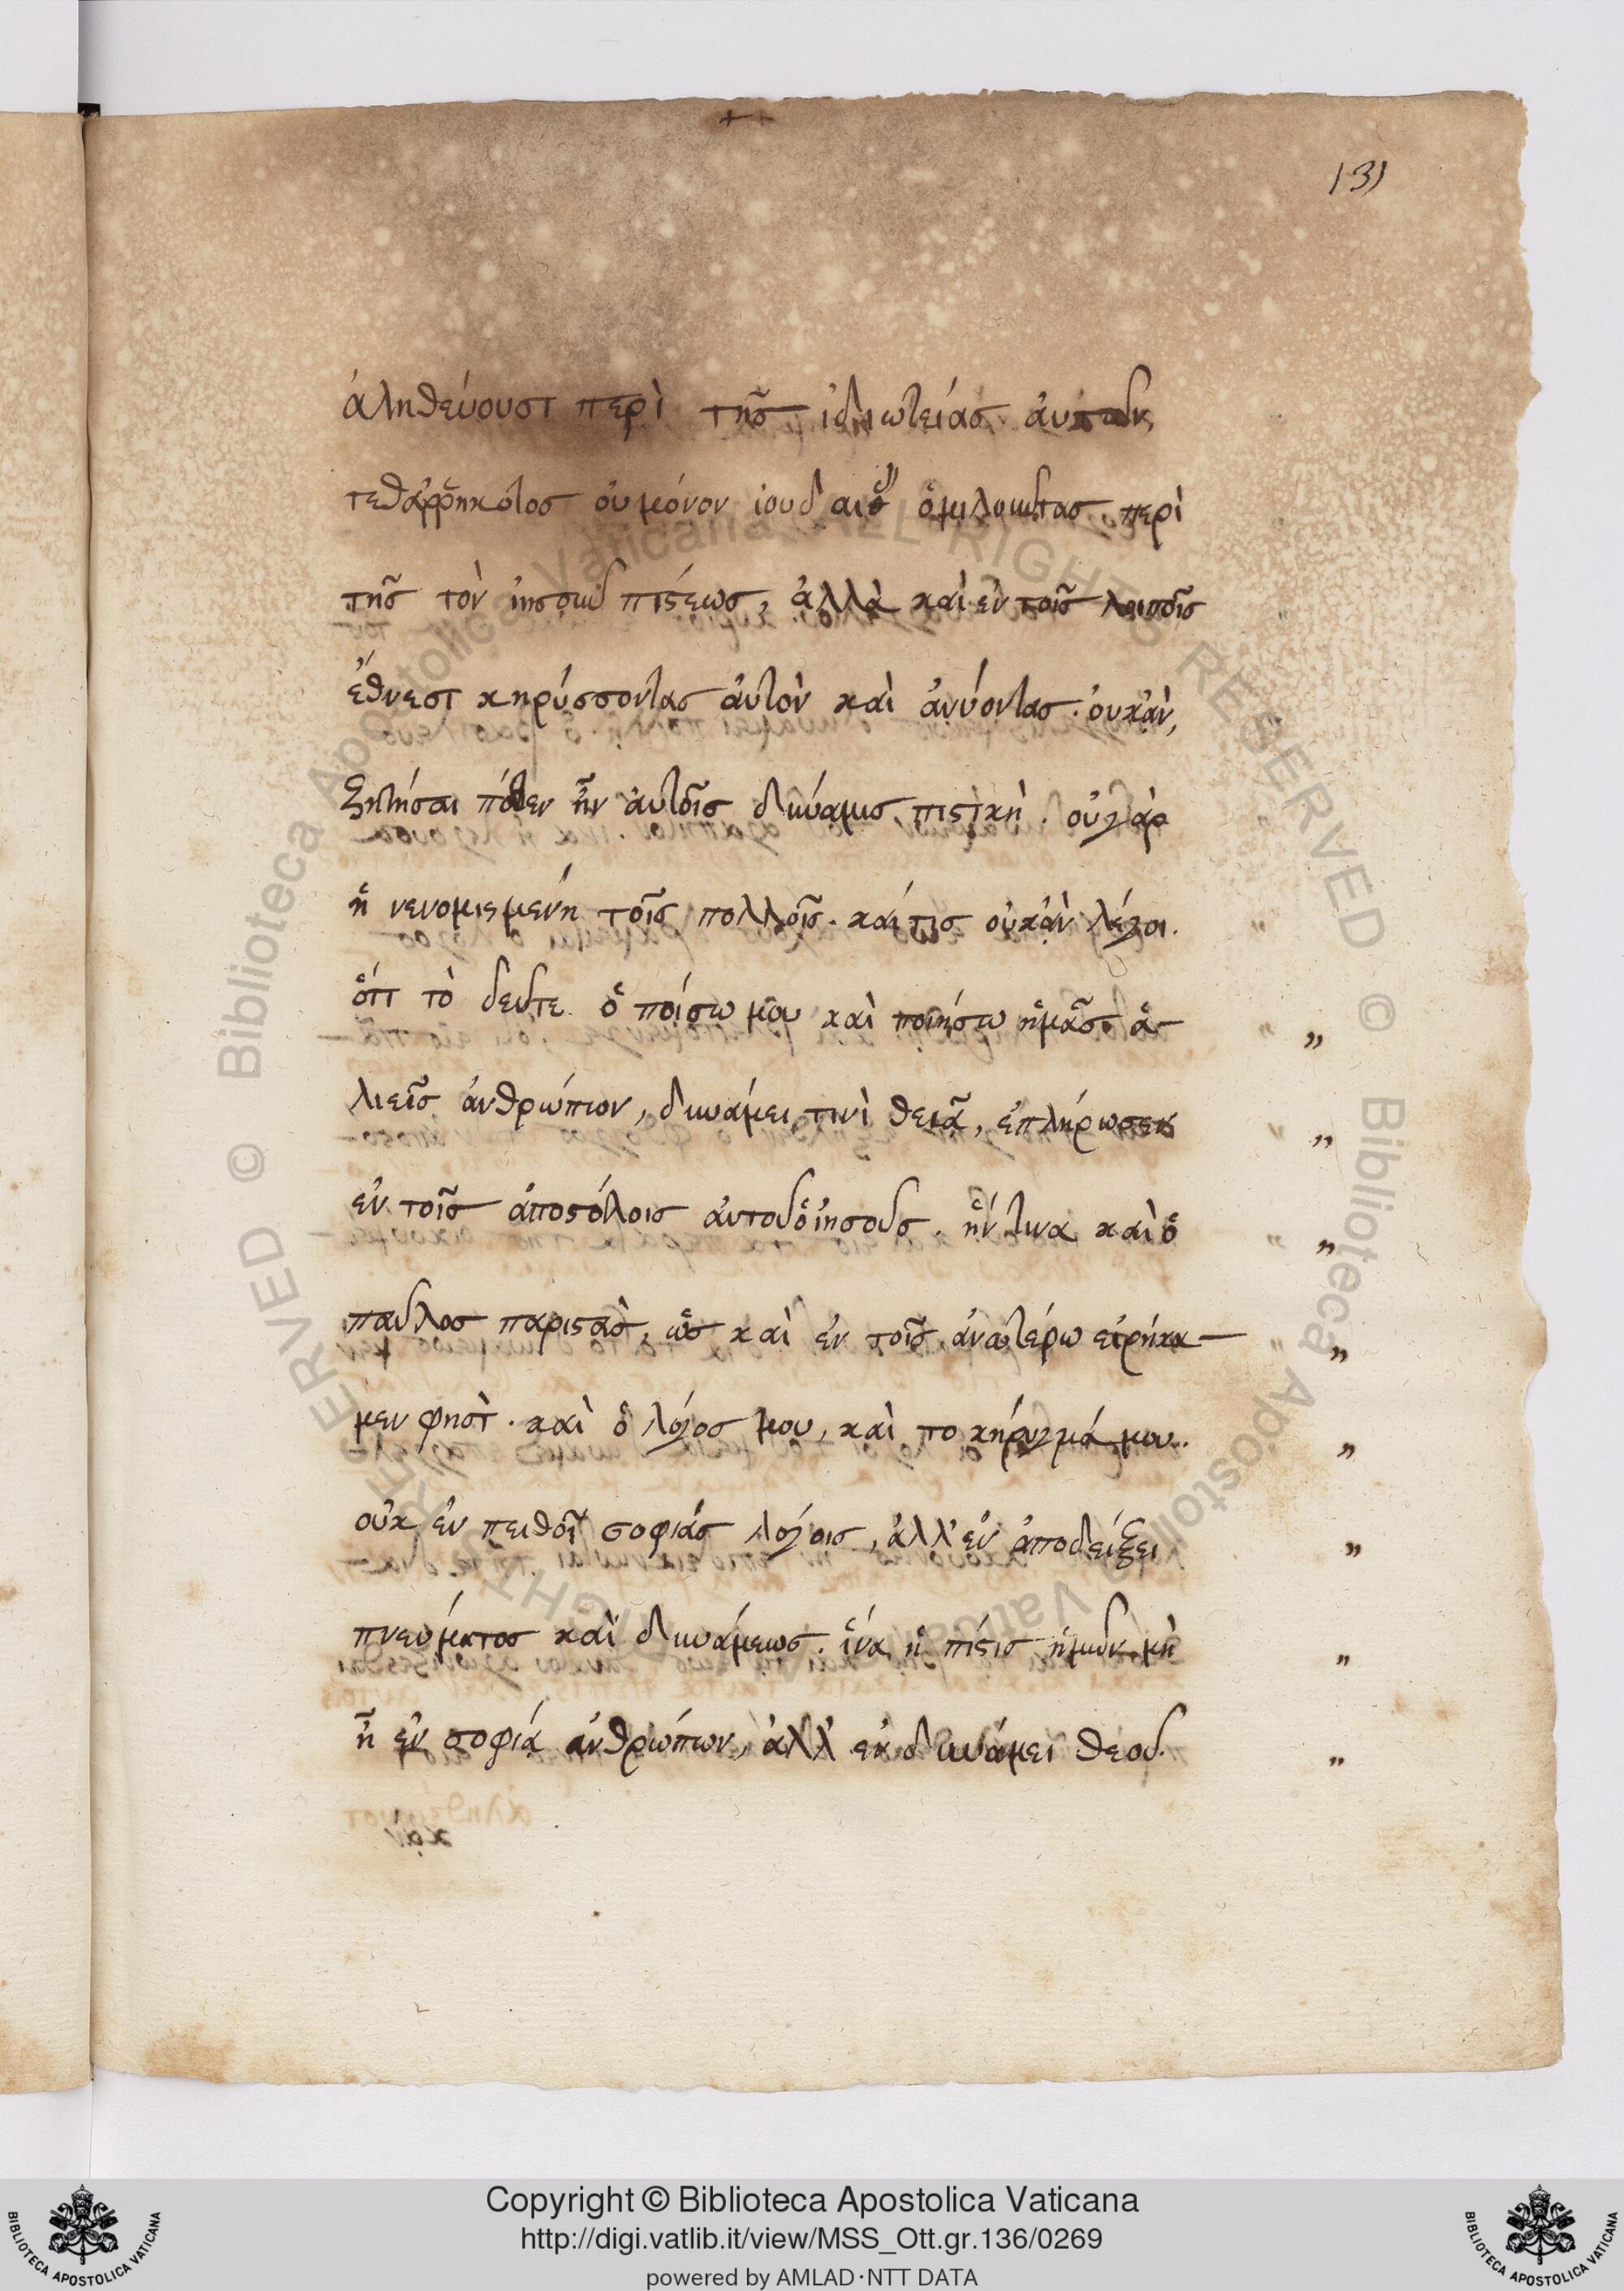 131
ἀληθεύουσι περὶ τῆς ἰδιωτείας αὐτῶν,
τεθαῤῥηκότος οὐ μόνον ἰουδαίοις ὁμιλοῦντας περὶ
τῆς τὸν ἰησοῦν πίστεως, ἀλλὰ καὶ ἐν τοῖς λοιποῖς
ἔθνεσι κηρύσσοντας αὐτὸν καὶ ἀνύοντας. οὐκ ἂν,
ζητήσαι πόθεν ἦν αὐτοῖς δύναμις πιστικὴ. οὐ γὰρ
ἡ νενομισμένη τοῖς πολλοῖς. καί τις οὐκ ἂν λέγοι.
ὅτι τὸ δεῦτε ὁ ποίσω μου καὶ ποιήσω ἡμᾶς ἁ-
λιεῖς ἀνθρώπιον, δυνάμει τινὶ θεία, ἐπλήρωσεν
ἐν τοῖς ἀποστόλοις αὐτοῦ ὁ ἰησοῦς. ἥν τινα καὶ ὁ
παῦλος παριστὰς, ὡς καὶ ἐν τοῖς ἀνωτέρω εἰρήκα-
μεν φησὶ. καὶ ὁ λόγος μου, καὶ το κήρυγμά μου.
οὐκ ἐν πειθοῖ σοφιάς λόγοις, ἀλλ' ἐν ἀποδείξει
πνεύματος καὶ δυνάμεως. ἵνα ἡ πίστις ἡμῶν μὴ
ἦ ἐν σοφιά ἀνθρώπων, ἀλλ' ἐν δυνάμει θεοῦ.
Copyright © Biblioteca Apostolica Vaticana
http://digi.vatlib.it/view/MSS_Ott.gr.136/0269
powered by AMLAD·NTT DATA
BIBLIOTECA APOSTOLICA VATICANA
BIBLIOTECA APOSTOLICA VATICANA